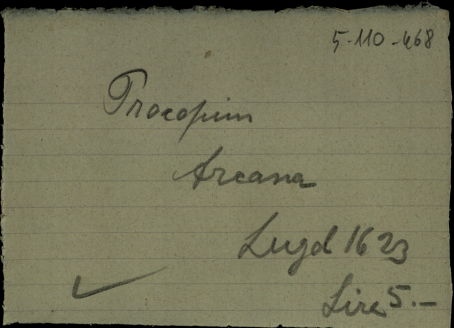 5-110-468
Procopius
Arcana
Lugd 1623
Lire 5.-